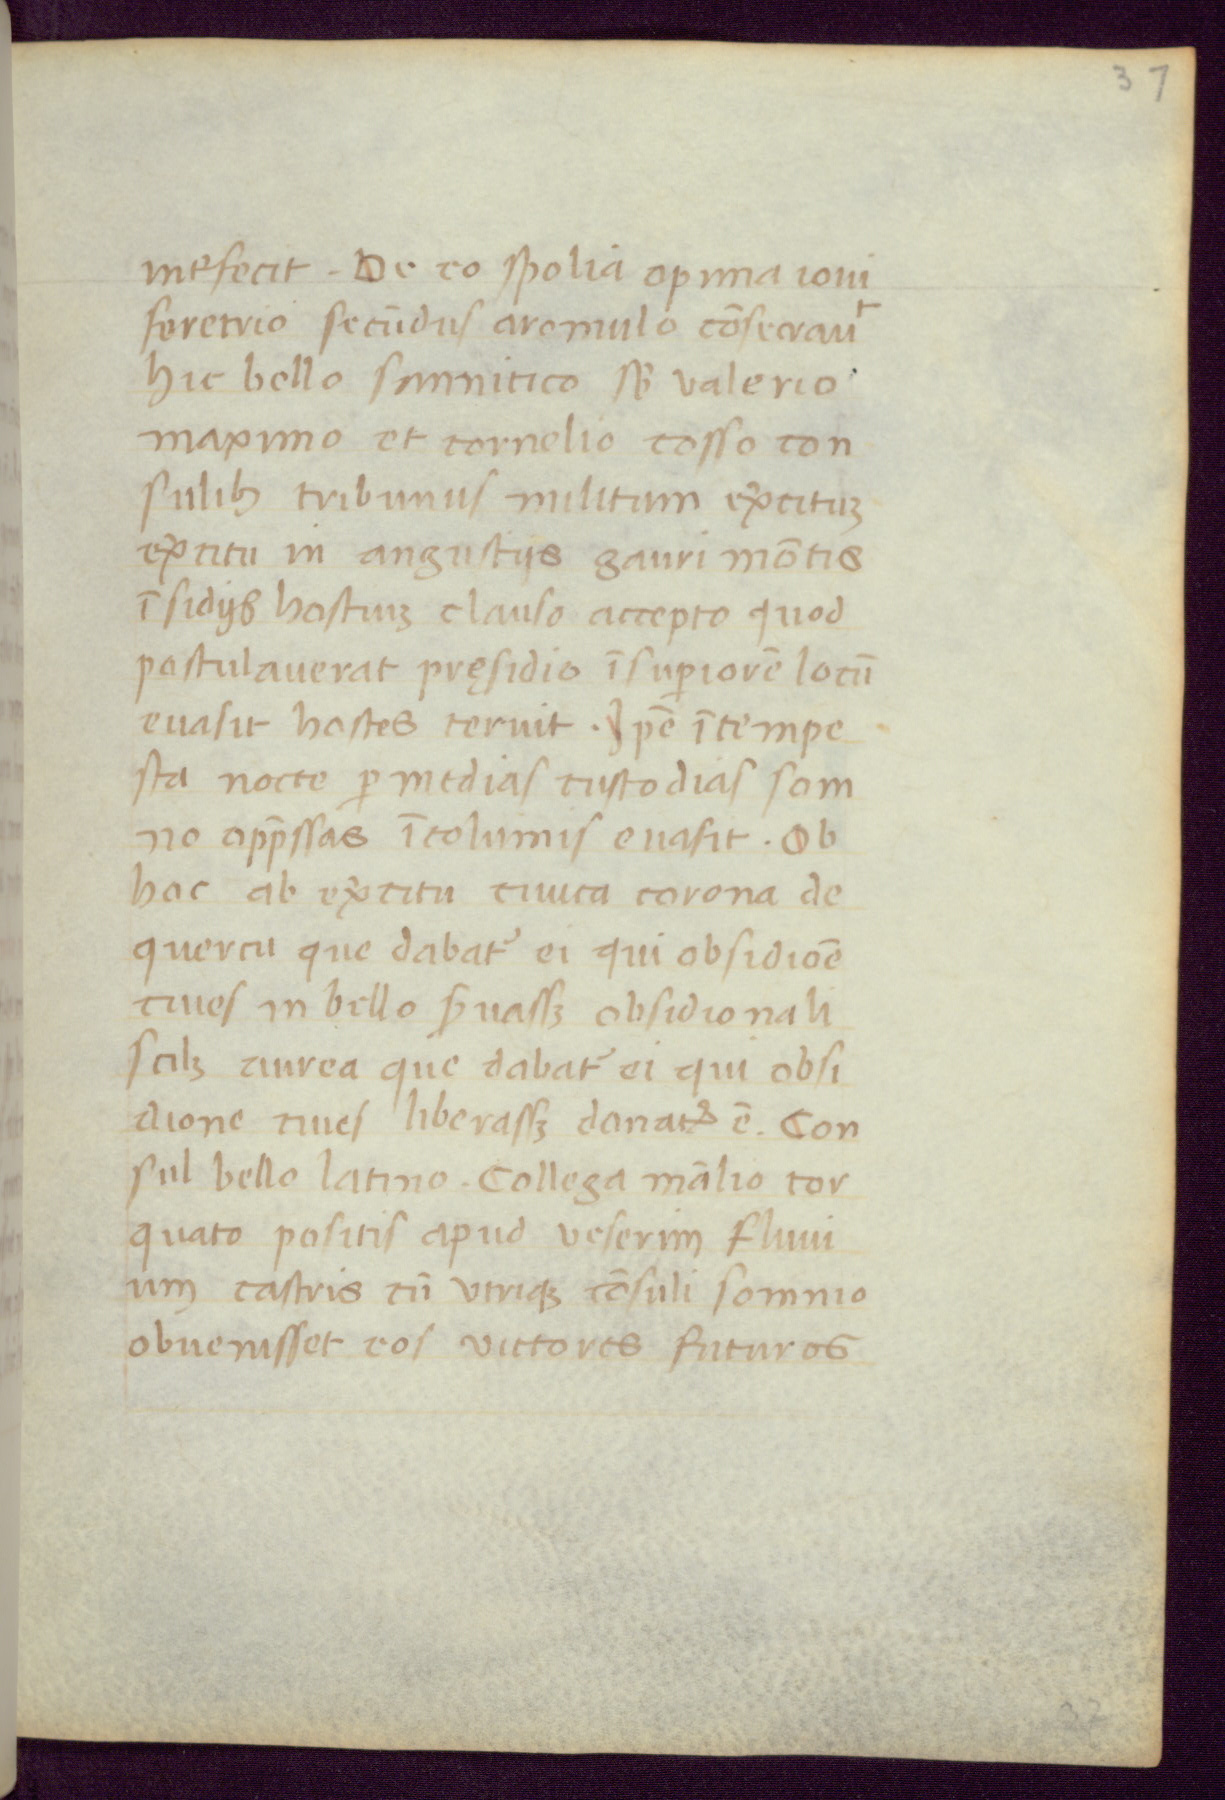 37
int̃fecit . De eo spolia opima ioui
feretrio secũdus aromulo cõsecrauᵗ
hic bello samnitico sb̃ valerio
maximo et cornelio cosso con
sulibꝫ tribunus militum ex̃cituꝫ
ex̃citu in angustijs gauri mõtis
ĩsidijs hostiuꝫ clauso accepto quod
postulauerat pręsidio ĩ suꝑiorẽ locũ
euasit hostes teruit . Ipẽ ĩtempe
sta nocte ꝑ medias custodias som
no opp̃ssas ĩcolumis euasit . Ob
hoc ab ex̃citu ciuica corona de
quercu que dabat᷑ ei qui obsidiõe
ciues in bello s̃uassꝫ obsidionali
scilꝫ aurea que dabat᷑ ei qui obsi
dione ciues liberassꝫ donatꝰ ẽ . Con
sul bello latino . Collega mãlio tor
quato positis apud veserim fluui
um castris cũ vtriqꝫ cõsuli somnio
obuenisset eos victores futuros
32